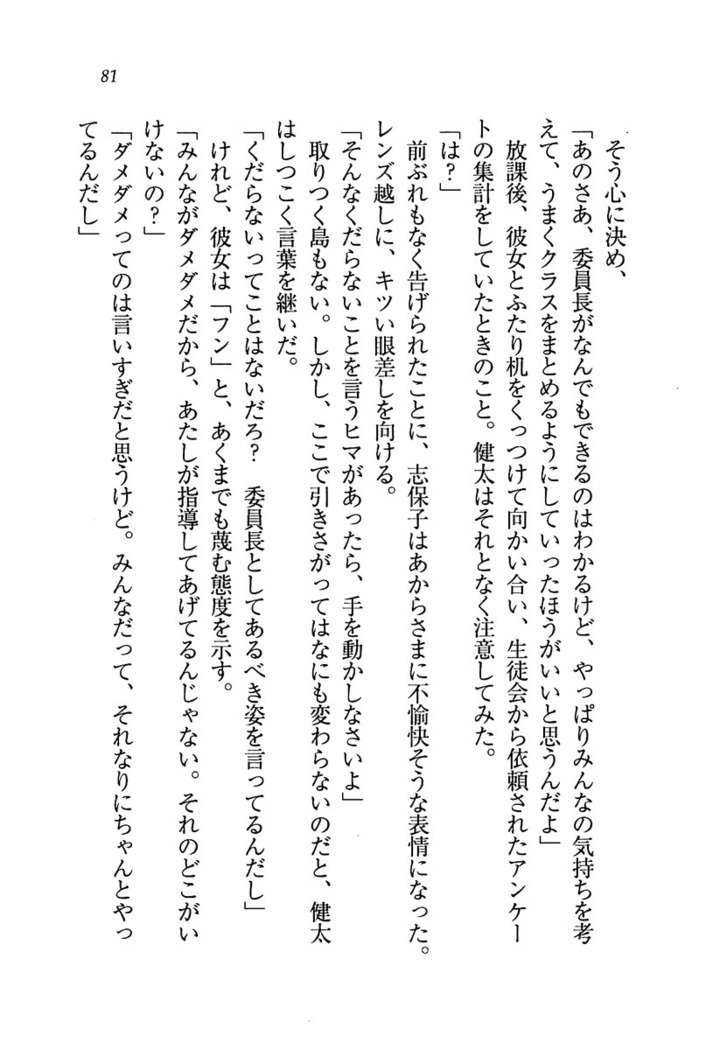 81
そう心に決め、
「あのさあ、委員長がなんでもできるのはわかるけど、やっぱりみんなの気持ちを考
えて、うまくクラスをまとめるようにしていったほうがいいと思うんだよ」
放課後、彼女とふたり机をくっつけて向かい合い、生徒会から依頼されたアンケー
トの集計をしていたときのこと。健太はそれとなく注意してみた。
「は？」
前ぶれもなく告げられたことに、志保子はあからさまに不愉快そうな表情になった。
レンズ越しに、キツい眼差しを向ける。
「そんなくだらないことを言うヒマがあったら、手を動かしなさいよ」
取りつく島もない。しかし、ここで引きさがってはなにも変わらないのだと、健太
はしつこく言葉を継いだ。
「くだらないってことはないだろ？　委員長としてあるべき姿を言ってるんだし」
けれど、彼女は「フン」と、あくまでも蔑む態度を示す。
「みんながダメダメだから、あたしが指導してあげてるんじゃない。それのどこがい
けないの？」
「ダメダメってのは言いすぎだと思うけど。みんなだって、それなりにちゃんとやっ
てるんだし」